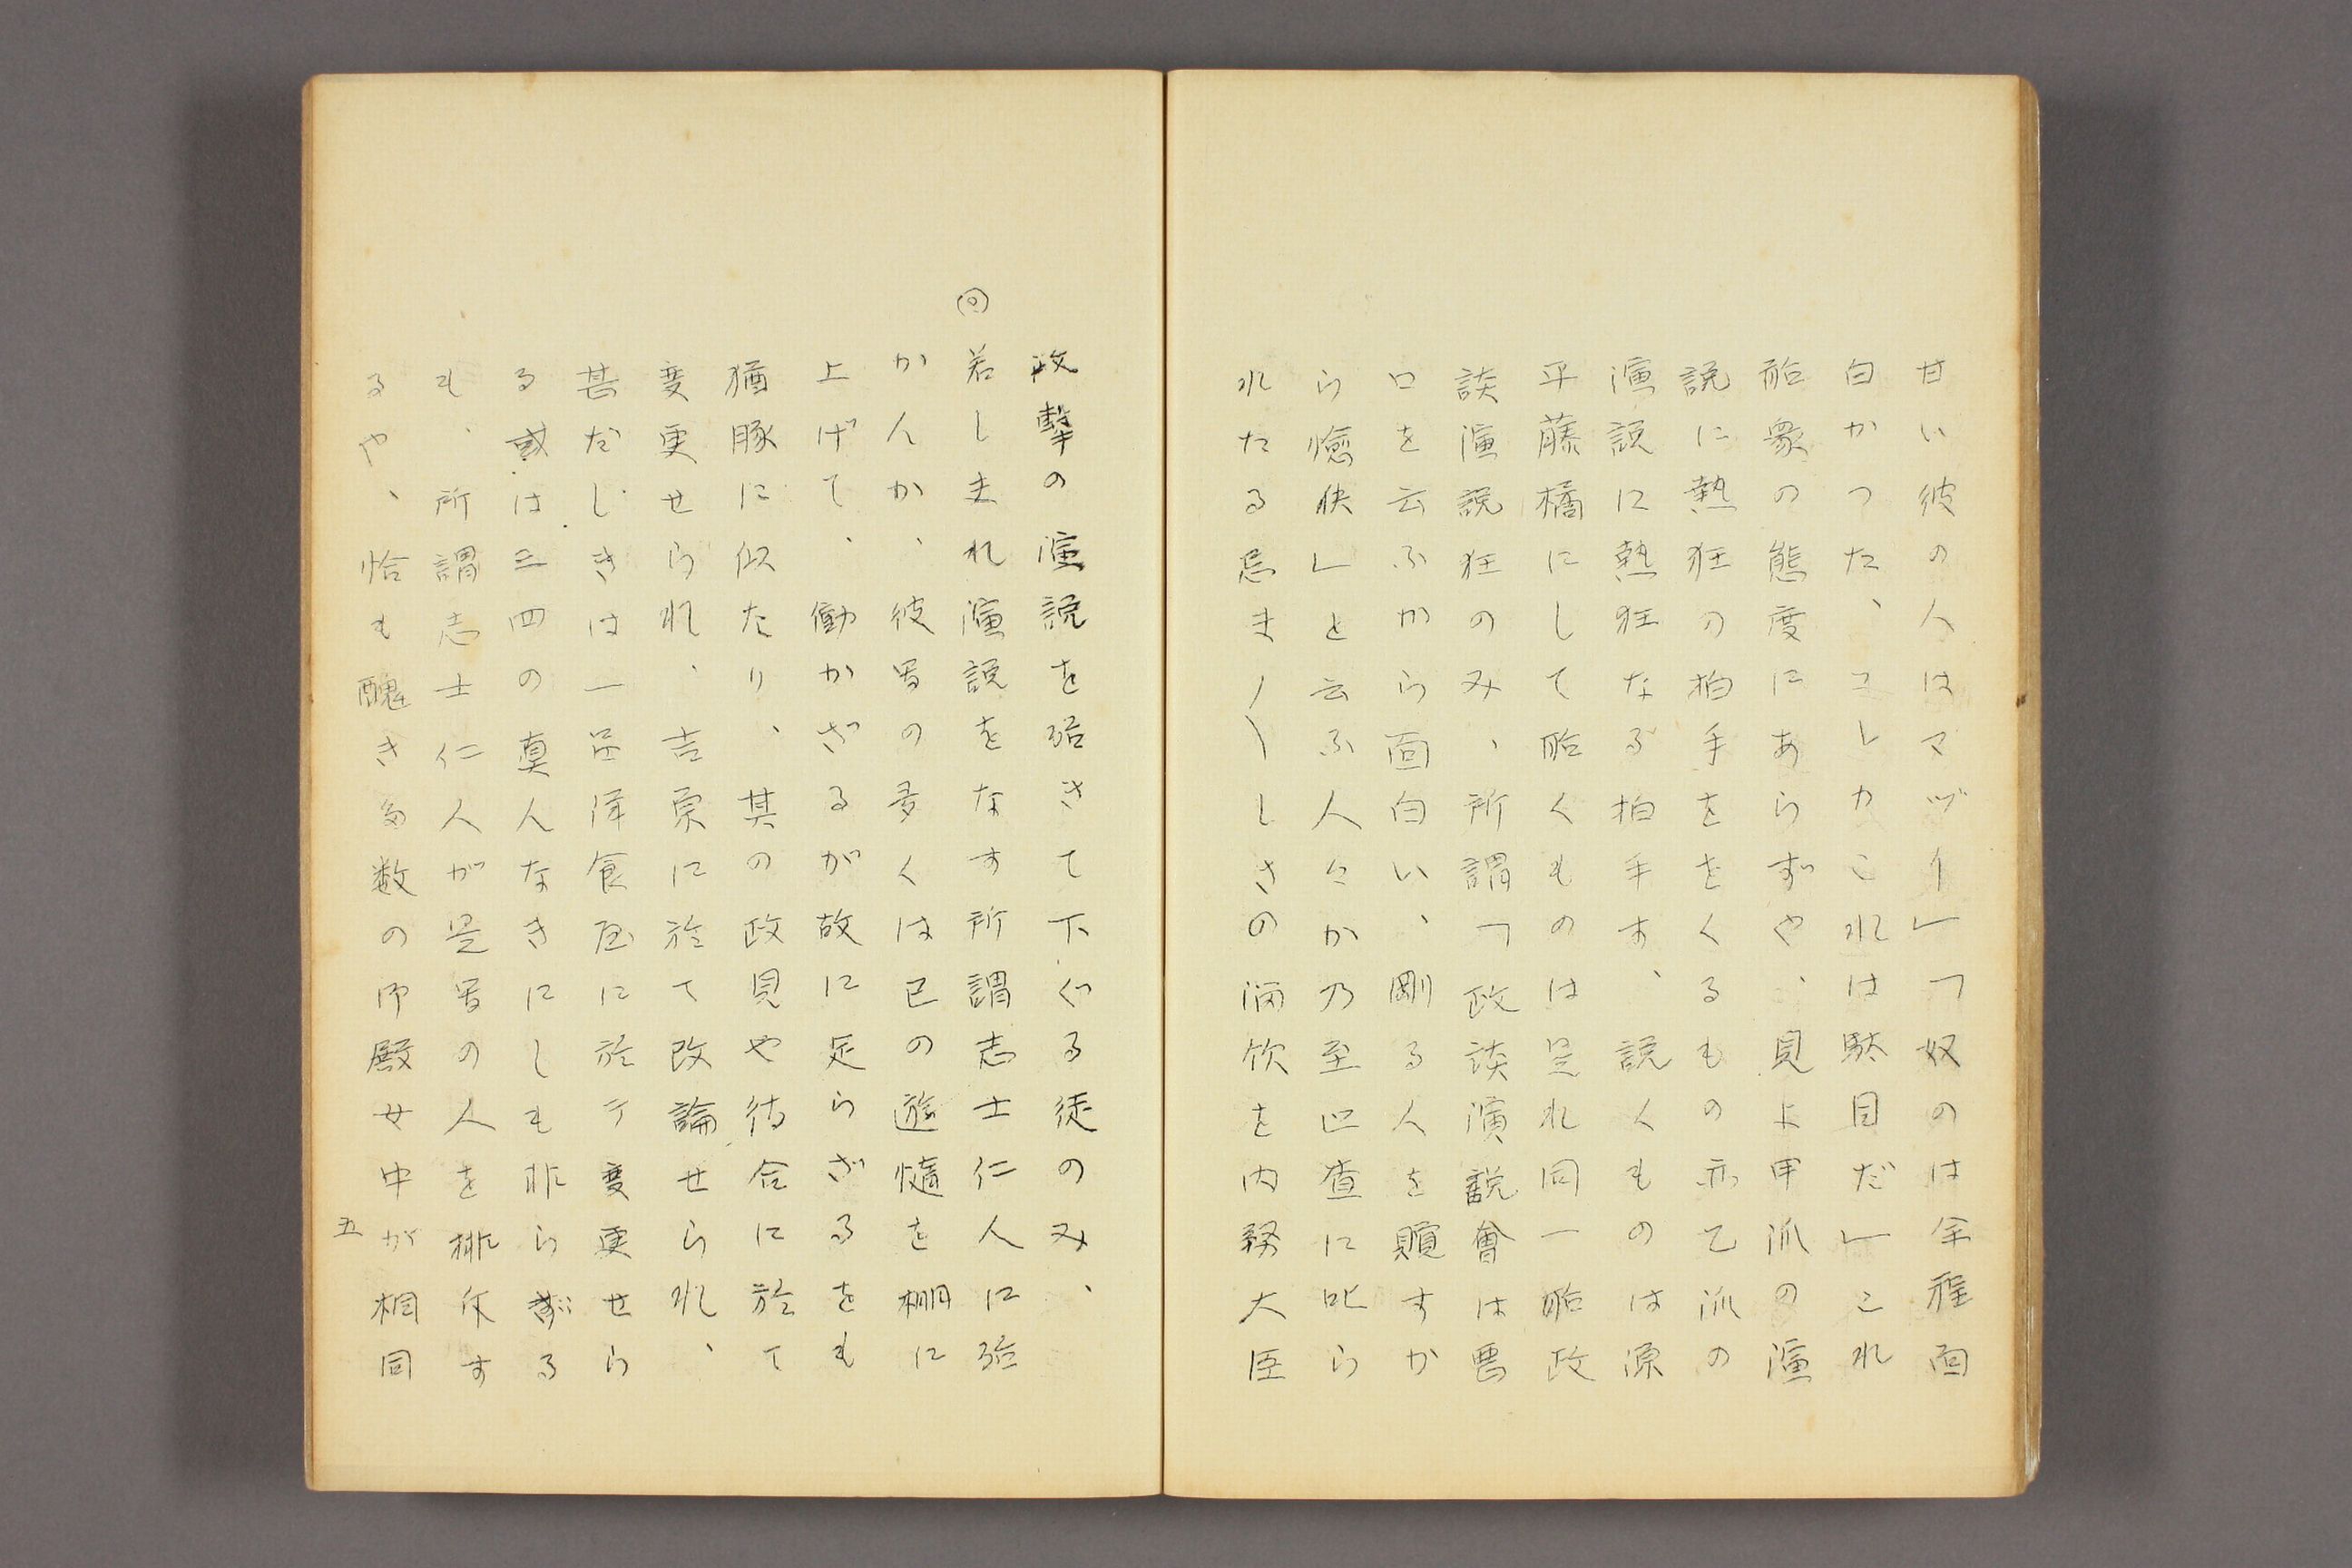 甘い彼の人はマヅイ」「奴のは余程面
白かつた、コレカこれは駄目だ」これ
聴衆の態度にあらずや、見よ甲派の演
説に熱狂の拍手ををくるもの亦乙派の
演説に熱狂なる拍手す、説くものは源
平藤橘にして聴くものは是れ同一聴政
談演説狂のみ、所謂「政談演説會は悪
口を云ふから面白い、剛る人を贖すか
ら愉快」と云ふ人々か乃至巡査に叱ら
れたる忌ま〱しさの酒飲を内務大臣
攻撃の演説を聴きて下ぐる徒のみ、
若し夫れ演説をなす所謂志士仁人に聴
かんか、彼等の多くは己の遊惰を棚に
上げて、働かざるが故に足らざるをも
猶豚に似たり、其の政見や待合に於て
変更せられ、吉原に於て改論せられ、
甚だしきは一品洋食屋に於テ変更せら
る或は三四の真んなきにしも非らざる
も、所謂志士仁人が是等の人を排斥す
るや、恰も醜き多数の御殿女中が相同
五